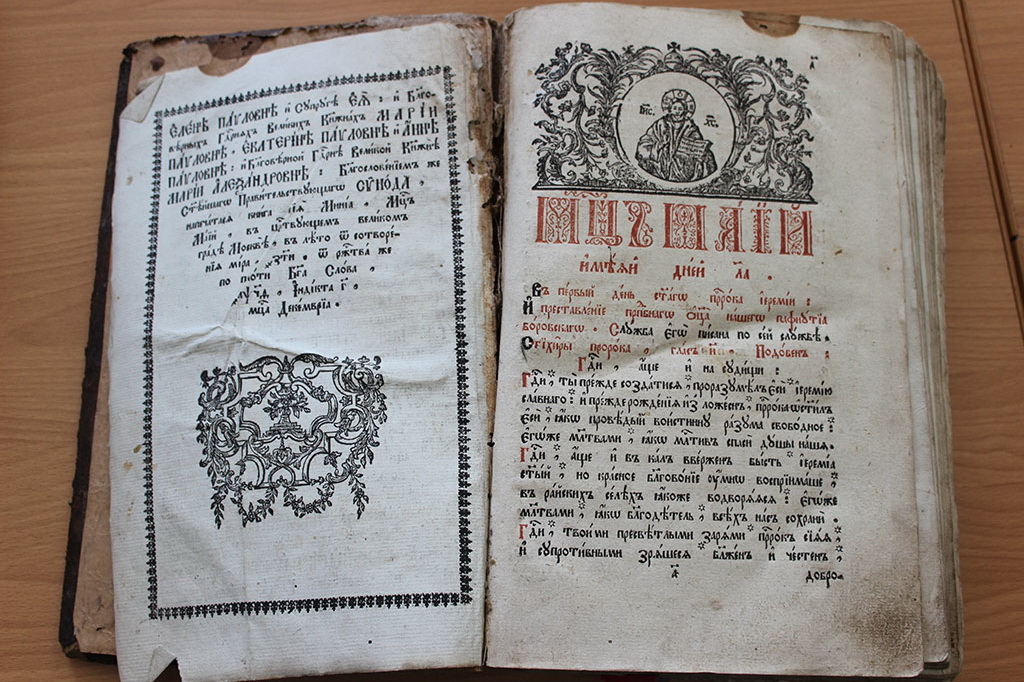 Еленѣ Паѵловнѣ и Супругѣ Еѧ҄: и Благо-
вѣрныхъ Гдⷭрнѧхъ Великихъ Кнѧжнахъ Маріи
Паѵловнѣ, Екатеринѣ Паѵловнѣ и Аннѣ
Паѵловнѣ: и Благовѣрной Гдⷭрнѣ Великой Кнѧжнѣ
Маріи Алеѯандровнѣ: Благословеніемъ же
Ст҃ѣйшагѡ Правительствующагѡ Сѵнода,
напечатасѧ книга сіѧ Миніа, Мцⷭъ
Маій, въ црⷭтвующемъ великомъ
градѣ Москвѣ, въ лѣто ѿ сотворе-
ніѧ міра, ѿ ржⷭтва же
по плоти Бг҃а Слова,
Індікта г҃,
мцⷭа Декемвріа.
Мцⷭъ Маій
имѣѧй дней ла҃.
Въ первый день ст҃агѡ прⷪрока іереміи:
И преставленіе прпⷣбнагѡ ѻц҃а нашегѡ пафнутіа
боровскагѡ. Служба егѡ писана по сей службѣ.
Стіхиры пророка, гласъ и҃. Подобенъ:
Гдⷭи, аще и на судищи:
Гдⷭи, ты прежде создатисѧ, проразумѣлъ еси іеремію
славнаго: и прежде рожденіѧ изъ ложеснъ, прⷪрока ѡст҃илъ
еси, ꙗкѡ провѣдый воистинну разума свободное:
егѡже мл҃твами, ꙗкѡ млⷭтивъ спаси душы нашѧ.
Гдⷭи, аще и въ калъ вверженъ бысть іереміа
ст҃ый, но красное благовоніе умнѡ воспріимаше,
въ райскихъ селѣхъ ꙗкоже водворѧѧсѧ: егѡже
мл҃твами, ꙗкѡ благодѣтель, всѣхъ насъ сохрани.
Гдⷭи, твоими пресвѣтлыми зарѧми прⷪрокъ сіѧѧ,
и супротивными зрѧщесѧ блаженъ и честенъ,
а҃
добро-